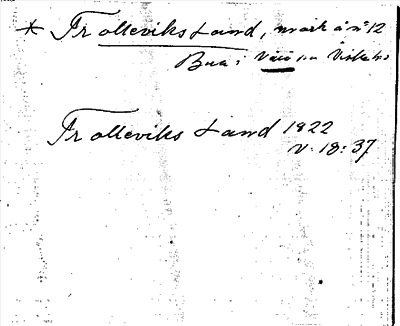 * Trolleviks Land, mark å nº 12
Bua i
Trolleviks Land 1822
V. 18:37